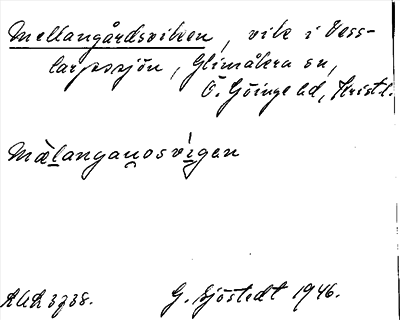 Mellangårdsviken, vik i Vess-
larpssjön, Glimåkra sn,
Ö. Göinge hd, Krist.l.
Mälanganosvigen
G. Sjöstedt 1946.